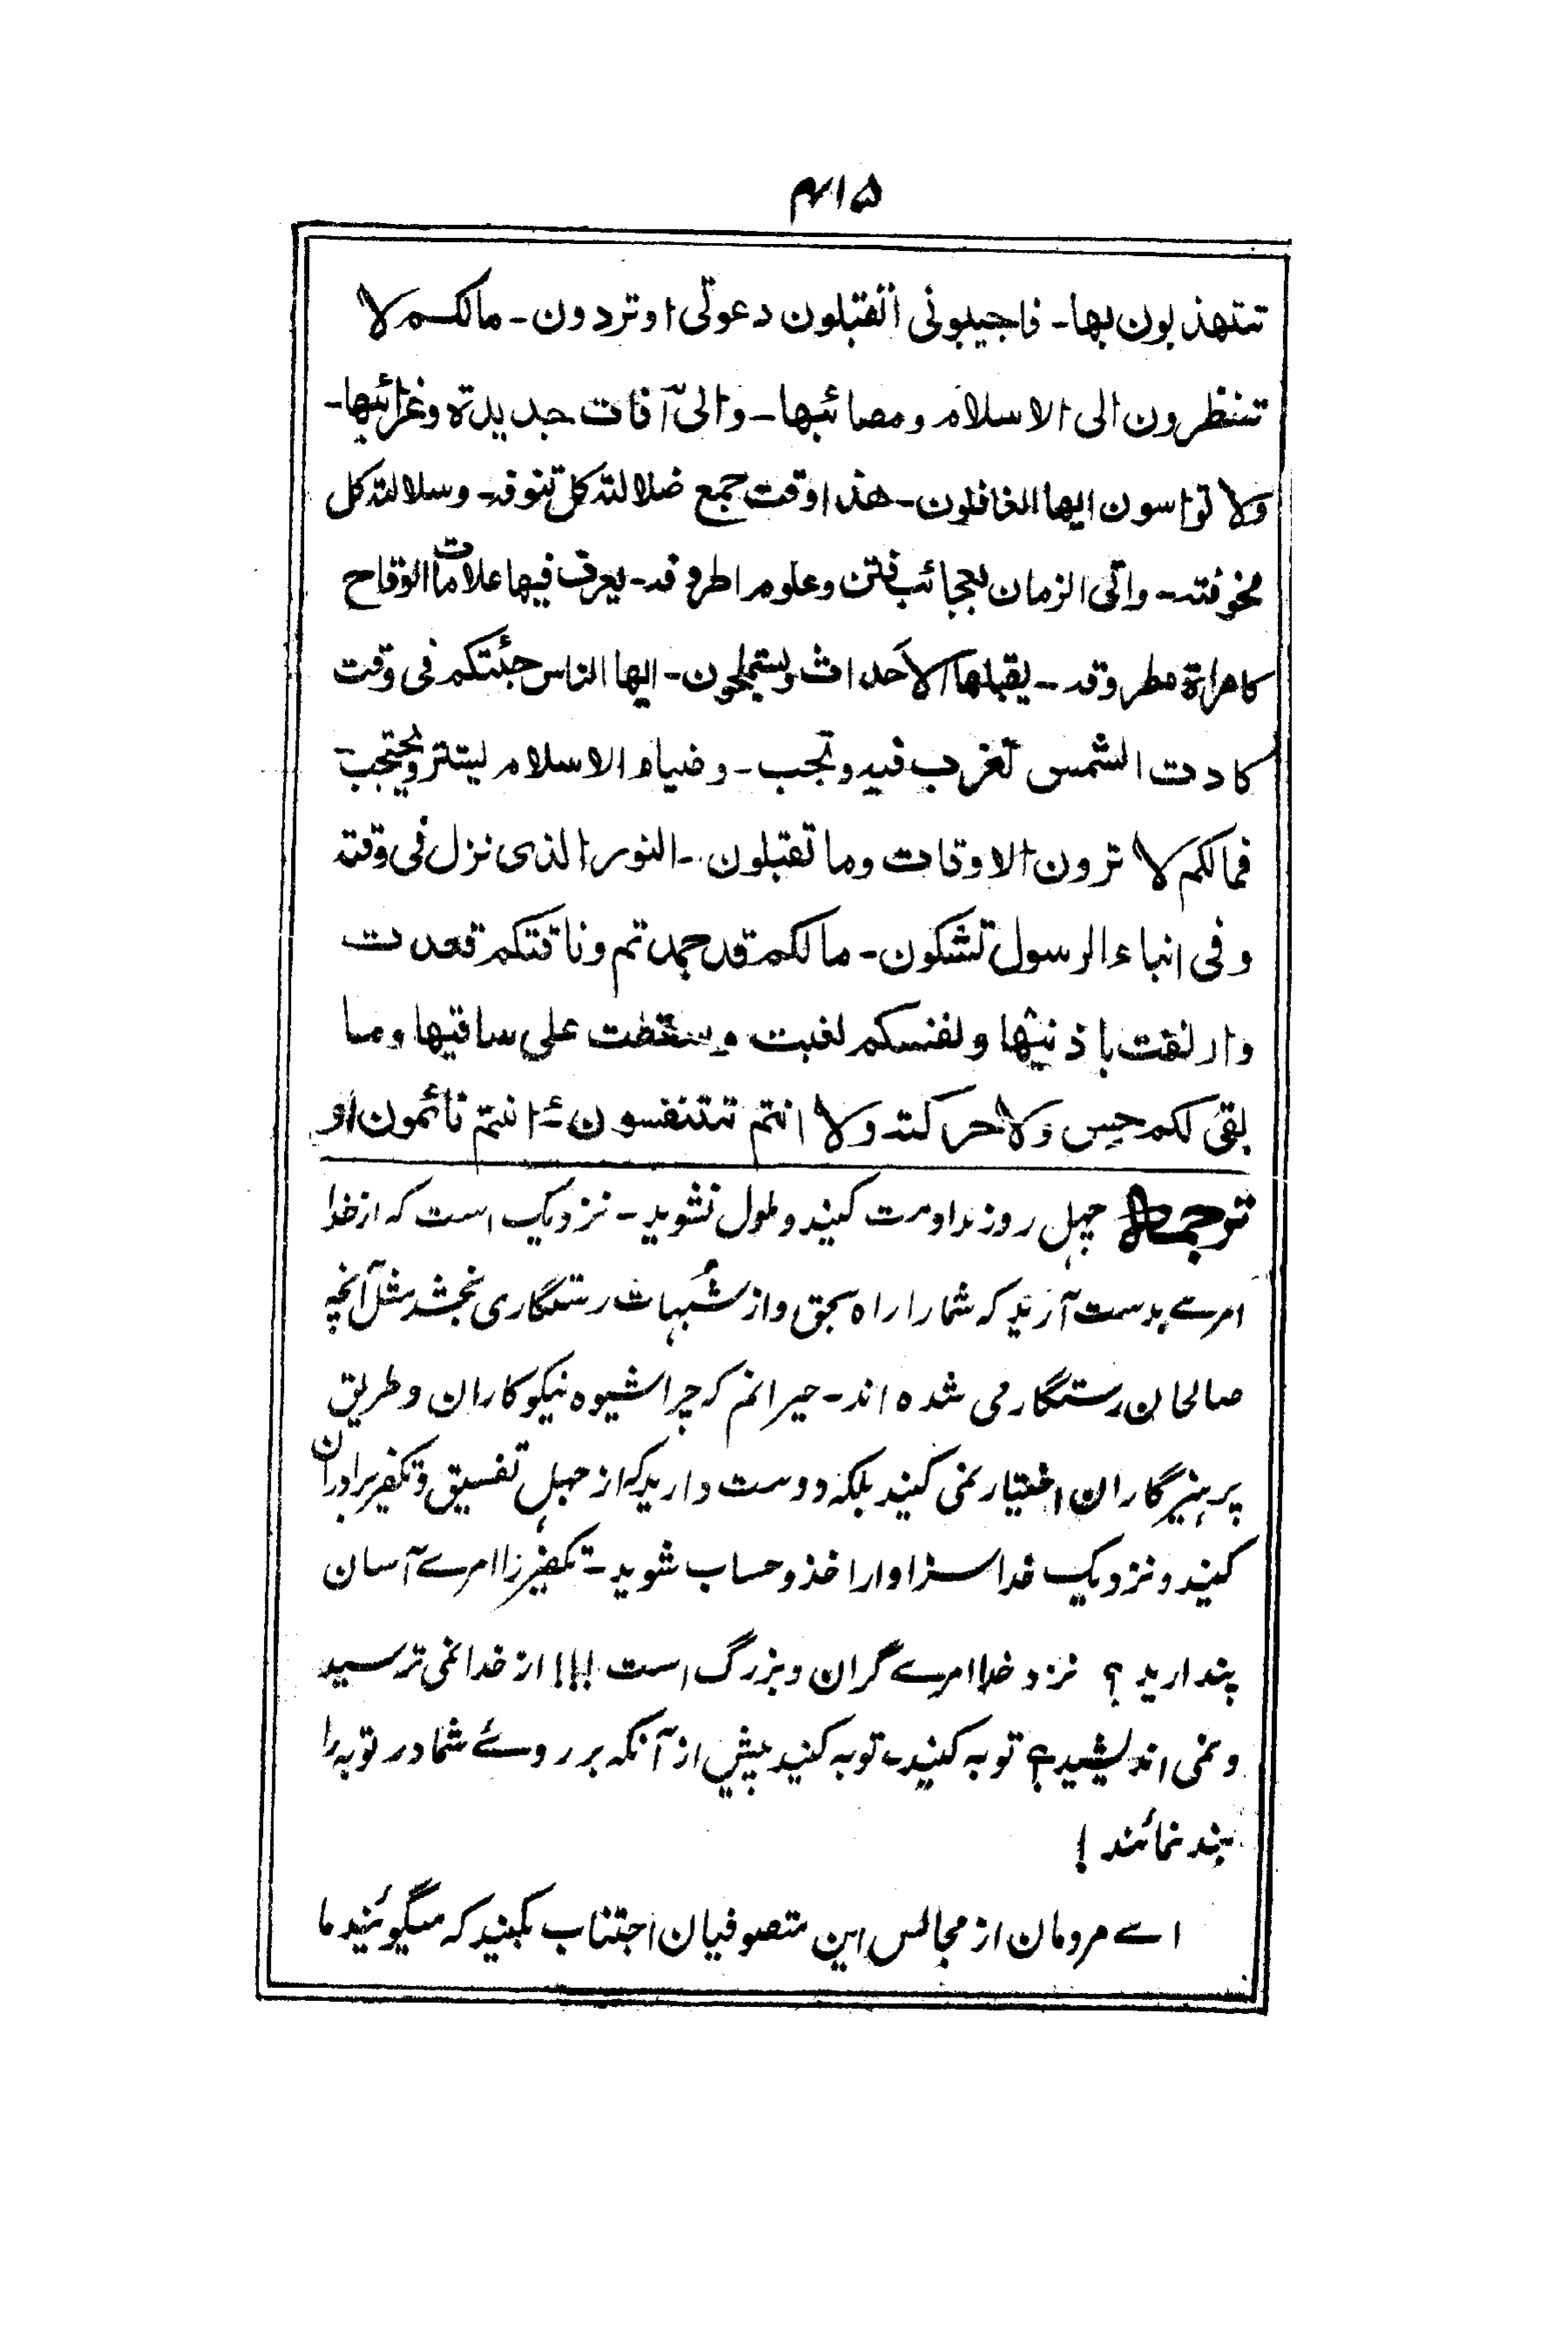 ۴۱۵
تتهذبون بها۔ فاجیبونی أتقبلون دعوتی او تردون۔ مالکم لا
تنظرون الی الاسلام ومصائبها۔ والی آفات جدیدة وغرائبها۔
ولا تواسون ایها الغافلون۔ هذا وقت جمع ضلالة کل تنوفة۔ وسلالة کل
مخوفة۔ واتی الزمان بعجائب فتن وعلوم اطروفة۔ یعرف فیها علامات الوقاح
کامراة مطروقة۔ یقبلها الأحداث ویستملحون۔ ایها الناس جئتکم فی وقت
کادت الشمس تغرب فیه وتجب۔ وضیاء الاسلام یستتر ویحتجب۔
فمالکم لا ترون الاوقات وما تقبلون۔ النور الذی نزل فی وقته
وفی انباء الرسول تشکون۔ مالکم قد جمدتم وناقتکم قعدت
وارنقت باذنیها ونفسکم لغبت وسقطت علی ساقیها وما
بقی لکم حس ولا حرکة ولا انتم تتنفسون ءَانتم نائمون او
ترجمہ چہل روز مداومت کنید و ملول نشوید۔ نزدیک است کہ از خدا
امرے بدست آرید کہ شما را راہ بحق و از شُبہات رستگاری بخشد مثل آنچہ
صالحان رستگار می شدہ اند۔ حیرانم کہ چرا شیوہ نیکوکاران و طریق
پرہیزگاران اختیار نمی کنید بلکہ دوست دارید کہ از جہل تفسیق و تکفیر برادران
کنید و نزدیک خدا سزاوار اخذ و حساب شوید۔ تکفیر را امرے آسان
پندارید؟ نزد خدا امرے گران و بزرگ است!!! از خدا نمی ترسید
و نمی اندیشید؟ توبہ کنید۔ توبہ کنید پیش از آنکہ بر روئے شما در توبہ را
بند نمائند!
اے مردمان از مجالس این متصوفیان اجتناب بکنید کہ میگوئیند ما